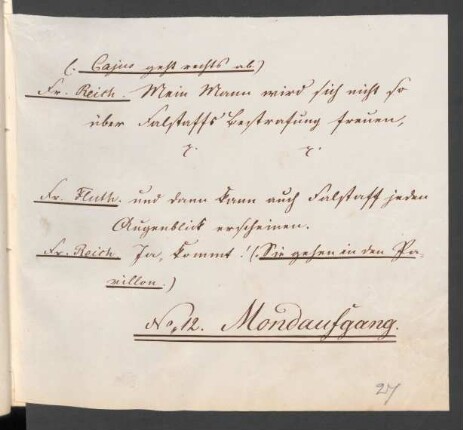 (: Cajus geht rechts ab.)
Fr. Reich. Mein Mann wird sich nicht so
über Falstaffs Bestrafung freuen,
Fr. Fluth. und dann kann auch Falstaff jeden
Augenblick erscheinen.
Fr. Reich. Ja, kommt! (: Sie gehen in den Pa-
villon.)
No. 12. Mondaufgang.
27